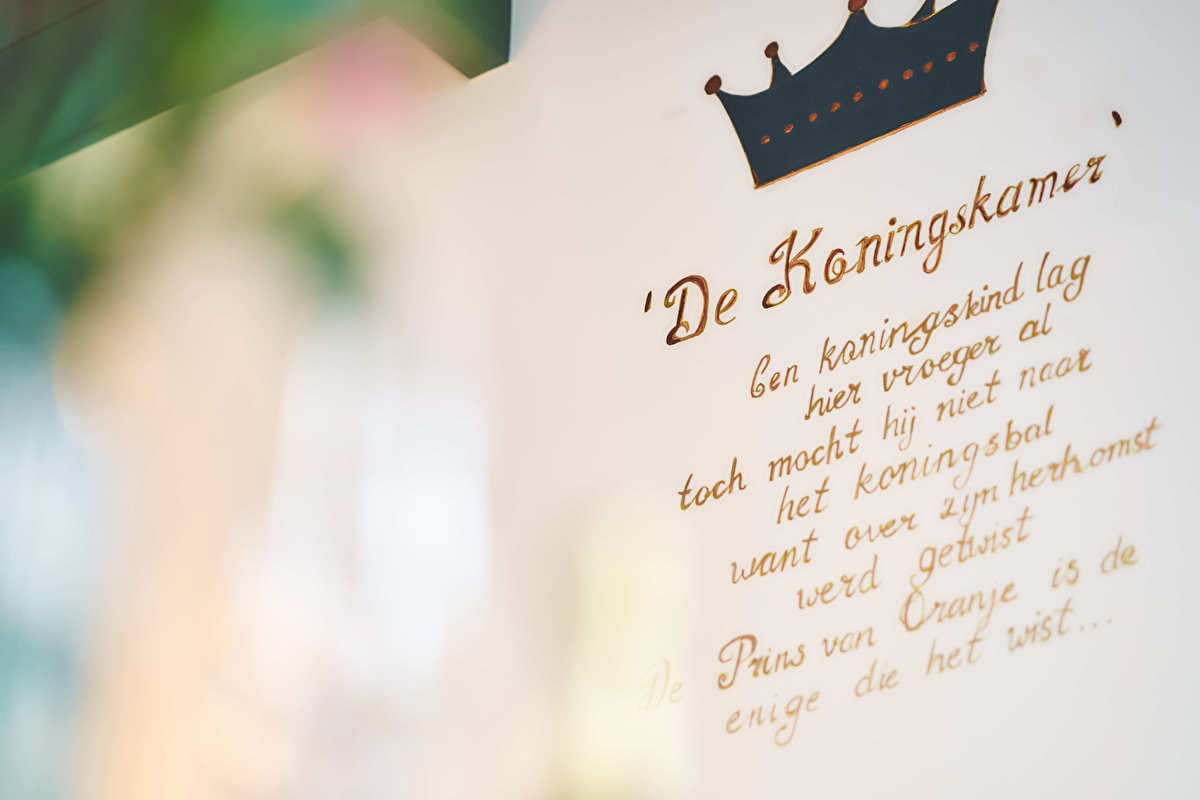 'De Koningskamer'
Een koningskind lag
hier vroeger al
toch mocht hij niet naar
het koningsbal
want over zijn herkomst
werd getwist
De Prins van Oranje is de
enige die het wist...